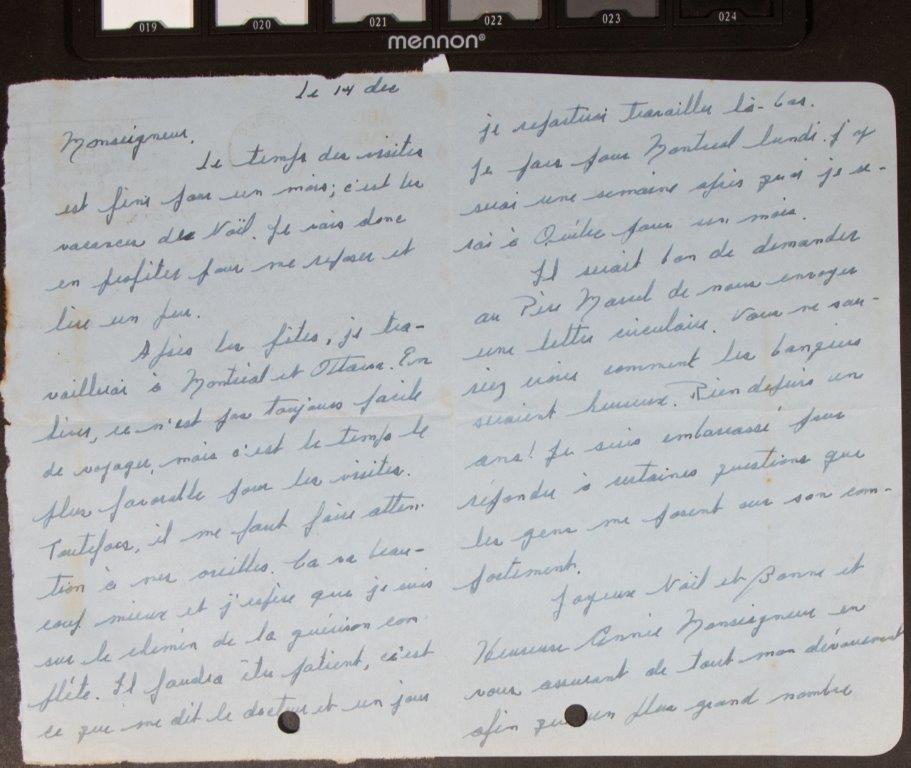 019 020 021 022 023 024
mennon®
le 14 dec
Monseigneur,
Le temps des visites
est fini pour un mois; c'est les
vacances de Noël. Je vais donc
en profiter pour me reposer et
lire un peu.
Après les fêtes, je tra-
vaillerai à Montréal et Ottawa. En
hiver, ce n'est pas toujours facile
de voyager, mais c'est le temps le
plus favorable pour les visites.
Toutefois, il me faut faire atten-
tion à mes oreilles. Ca va beau-
coup mieux et j'espère que je suis
sur le chemin de la guérison com-
plète. Il faudra être patient, c'est
ce que me dit le docteur et un jour
je repartirai travailler là-bas.
Je pars pour Montreal lundi. J'y
serai une semaine après quoi je se-
rai à Québec pour un mois.
Il serait bon de demander
au Père Marcel de nous envoyer
une lettre circulaire. Vous ne sau-
riez croire comment les
seraient heureux. Rien depuis un
ans! Je suis embarrassé pour
répondre à certaines questions que
les gens me posent sur son com-
portement.
Joyeux Noël et Bonne et
Heureuse Année Monseigneur en
vous assurant de tout mon dévouement
afin qu'un plus grand nombre